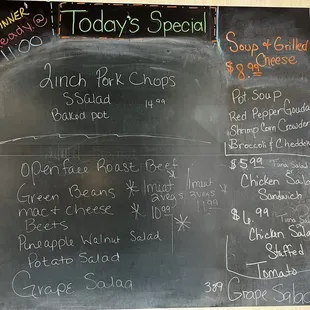 DINNER!
Ready @
11:00
Today's Special
2inch Pork Chops
SSalad 14.99
Bakod pot
Openface Roast Beef
Green Beans
mac + Cheese
Beets
Pineapple Walnut Salad
Potato Salad
Grape Salad 3.89
* 1 meat
2 veg's
10.99
1 meat
3 veg's
11.99
Soup & Grilled
Cheese
$8.99
Pot. Soup
Red Pepper Gouda
Shrimp Corn Crowder
Broccoli & Cheddar
$5.99 Tuna Salad
Chicken Salad
Sandwich
$6.99 Tuna Salad
Chicken Salad
Staffed
Tomato
Grape Salad